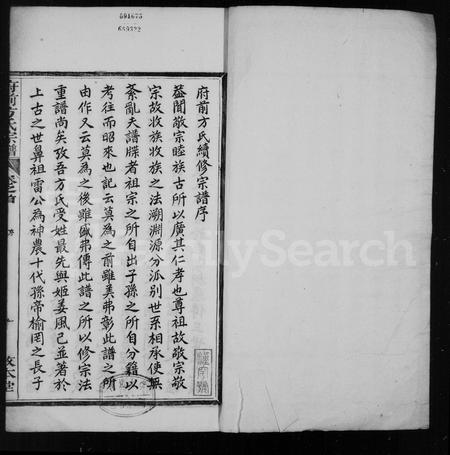 591673
659322
府前方氏續修宗譜序
蓋聞敬宗睦族古所以廣其仁孝也尊祖故敬宗敬
宗故收族收族之法溯淵源分派別世系相承使無
紊亂夫譜牒者祖宗之所自出子孫之所自分籍以
考往而昭來也記云莫為之前雖美弗彰此譜之所
由作又云莫為之後雖盛弗傳此譜之所以修宗法
重譜尚矣攷吾方氏受姓最先與姬姜風己並著於
上古之世鼻祖雷公為神農十代孫帝榆罔之長子
府前方氏宗譜
卷之首
序
FamilySearch